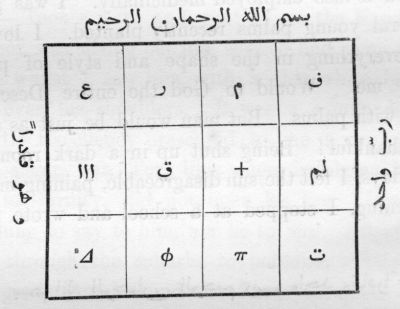 بسم الله الرحمان الرحيم
ف م ر ع
لم + ق ااا
ت π φ Δ
ربّ واحد
وهو قادراً